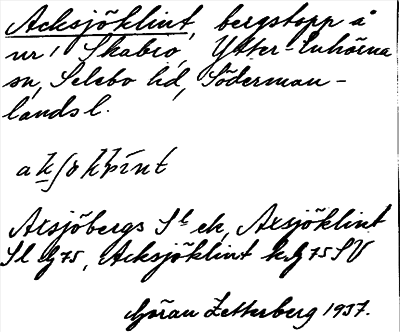 Acksjöklint, bergstopp å
nr 1 Skabro, Ytter-Enhörna
sn, Selebo hd, Söderman-
lands l.
Axsjöbergs Sl ek, Axsjöklint
Sl Eg 75, Acksjöklint k Eg 75 SV
Göran Zetterberg 1937.